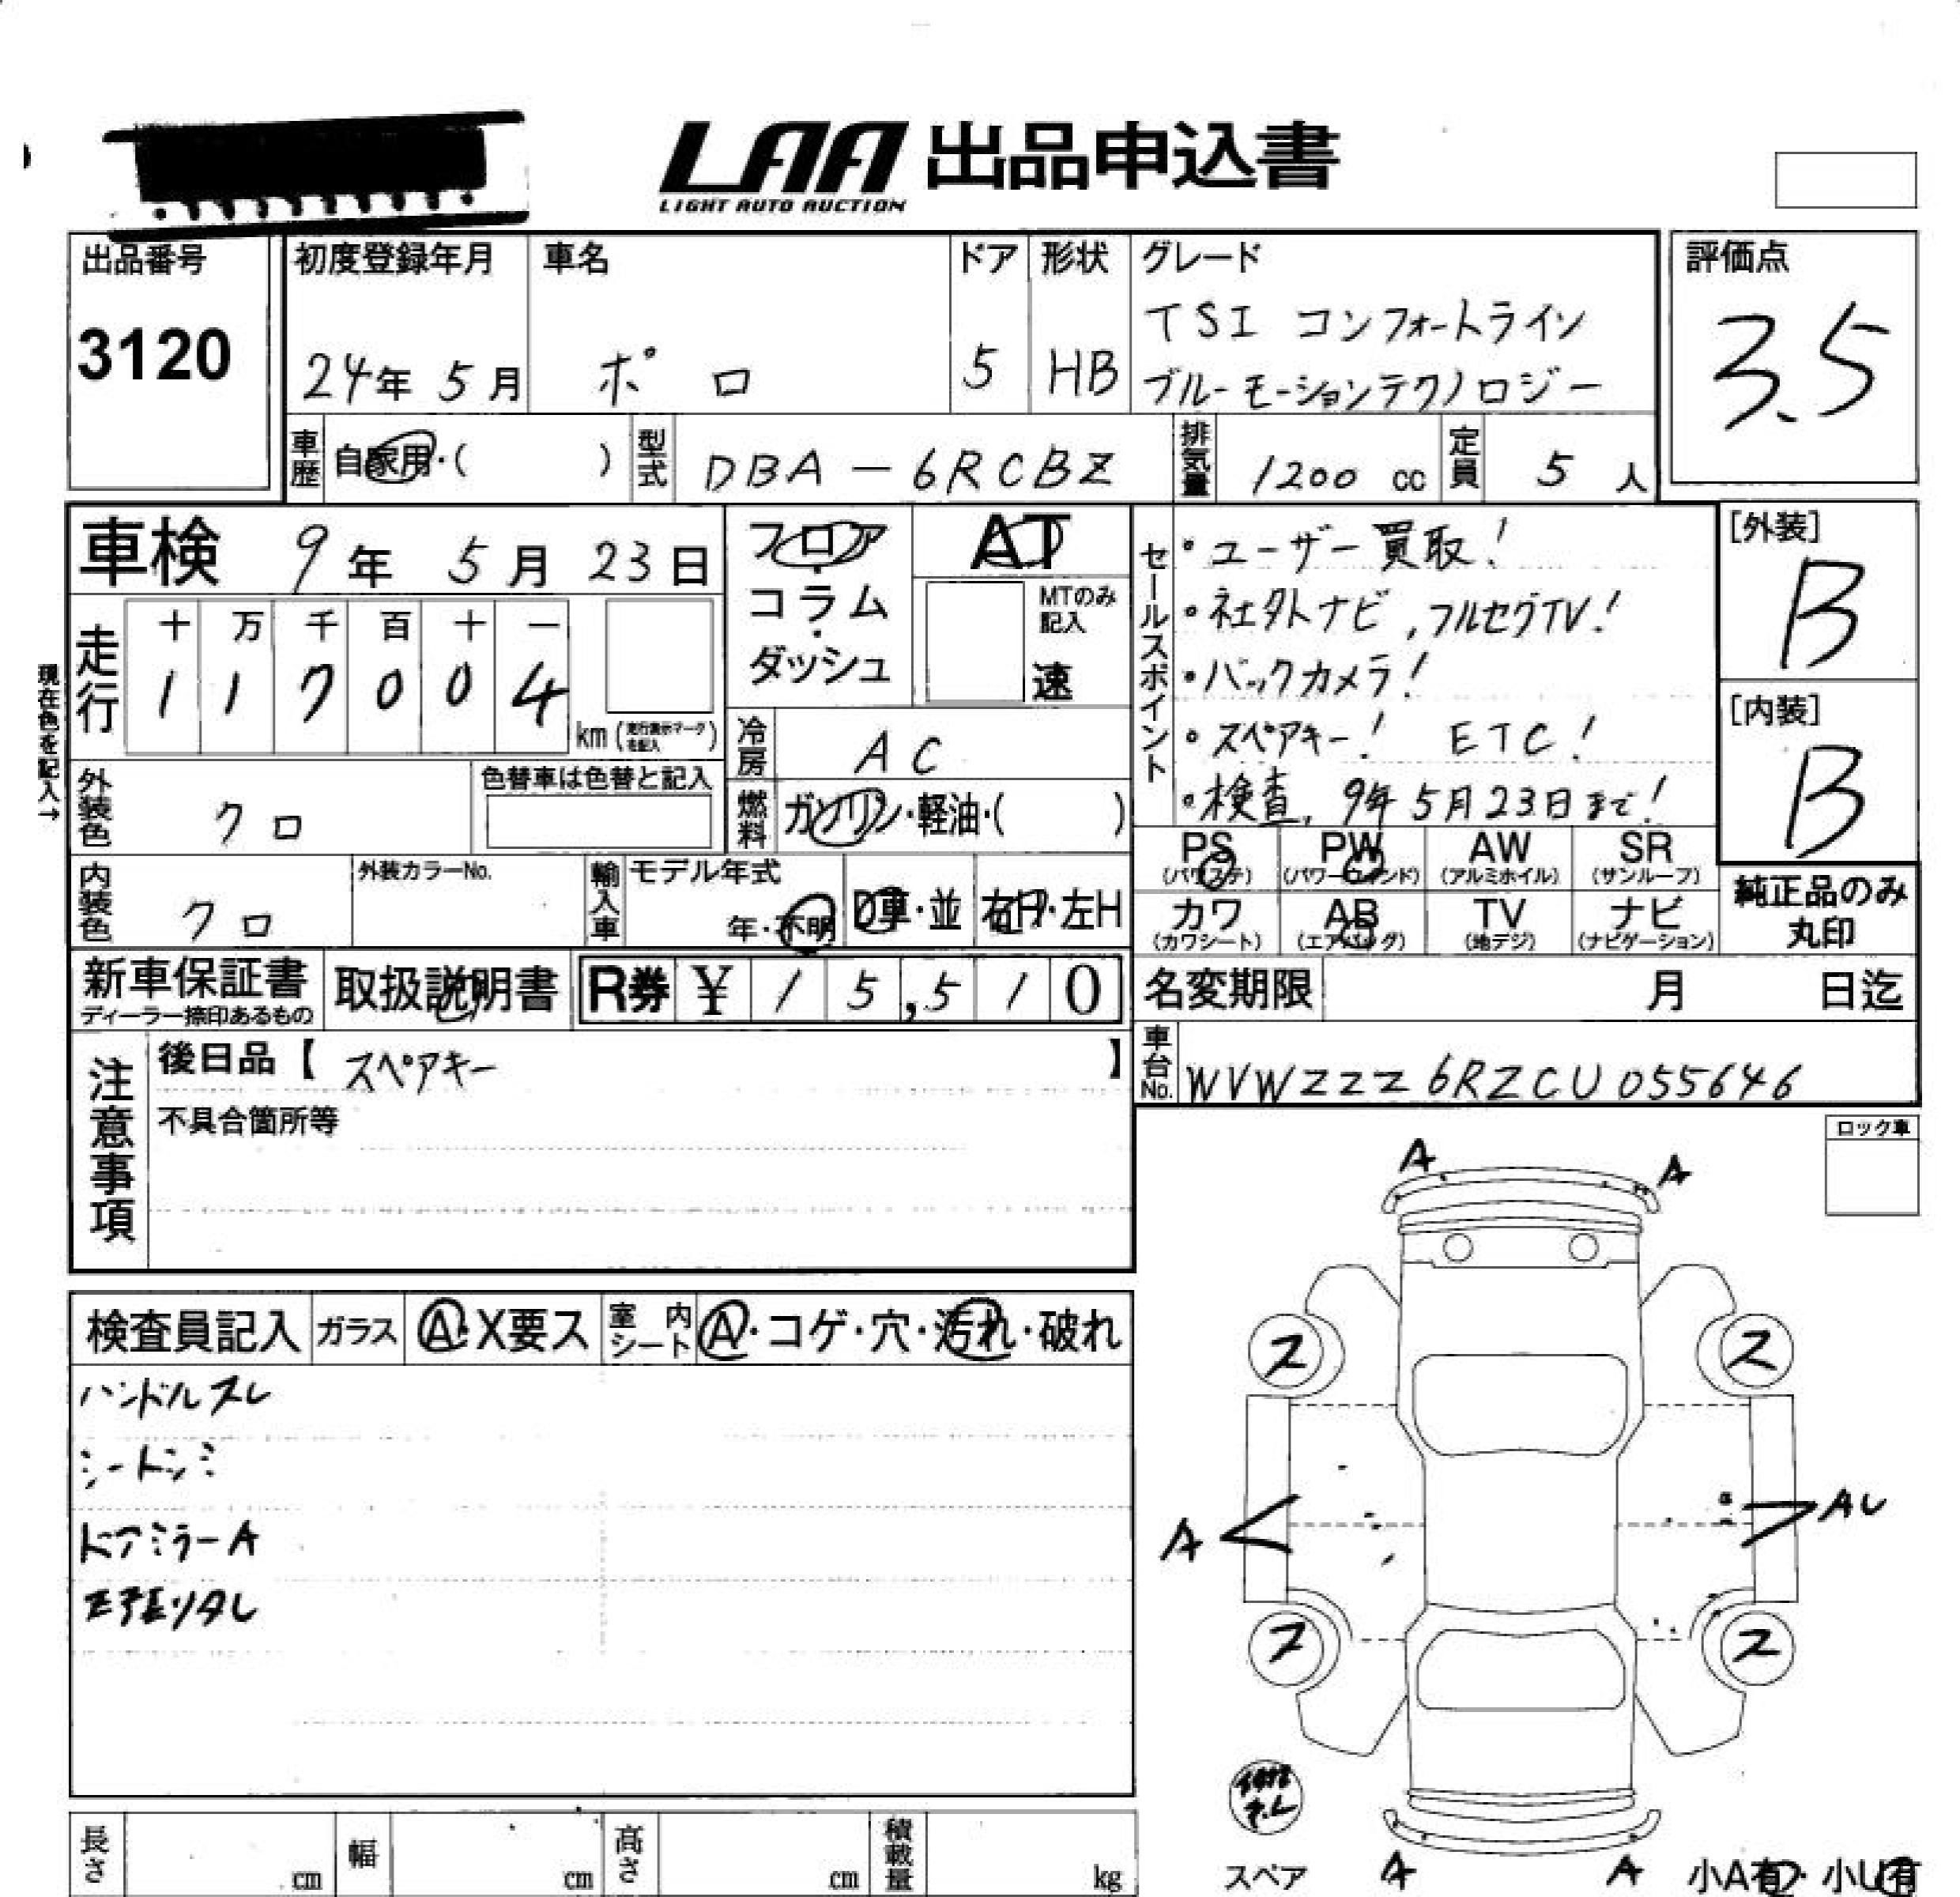 LAA 出品申込書
LIGHT AUTO AUCTION
出品番号
3120
初度登録年月
24年 5月
車名
ポロ
ドア
5
形状
HB
グレード
TSI コンフォートライン
ブルーモーションテクノロジー
評価点
3.5
車歴 自家用・( )
型式 DBA-6RCBZ
排気量 1200 cc
定員 5 人
車検 9年 5月 23日
現在色を記入→
走行
十 万 千 百 十 一
1 1 7 0 0 4
km (走行表示マークを記入)
フロア
・
コラム
・
ダッシュ
AT
MTのみ
記入
速
冷房 AC
燃料 ガソリン・軽油・( )
セールスポイント
・ユーザー買取!
・社外ナビ,フルセグTV!
・バックカメラ!
・スペアキー! ETC!
・検査,9年5月23日まで!
[外装]
B
[内装]
B
外装色 クロ
色替車は色替と記入
内装色 クロ
外装カラーNo.
輸入車
モデル年式
年・不明
D車・並
右H・左H
PS
(パワステ)
PW
(パワーウィンド)
AW
(アルミホイル)
SR
(サンルーフ)
カワ
(カワシート)
AB
(エアバッグ)
TV
(地デジ)
ナビ
(ナビゲーション)
純正品のみ
丸印
新車保証書
ディーラー捺印あるもの
取扱説明書
R券 ¥ 15,510
名変期限 月 日迄
車台No. WVWZZZ6RZCU055646
注意事項
後日品【 スペアキー 】
不具合箇所等
ロック車
検査員記入
ガラス A・X要ス
室内シート A・コゲ・穴・汚れ・破れ
ハンドルスレ
シートシミ
ドアミラーA
天張リタレ
A A
ス ス
A AU
ス ス
スペア
A A
小A有・小U有
長さ cm
幅 cm
高さ cm
積載量 kg